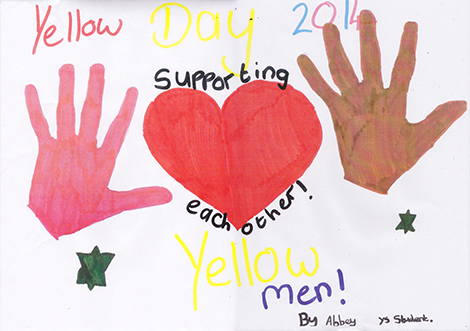 Yellow Day 2014
supporting
each other!
Yellow
men!
By Abbey ys Student.